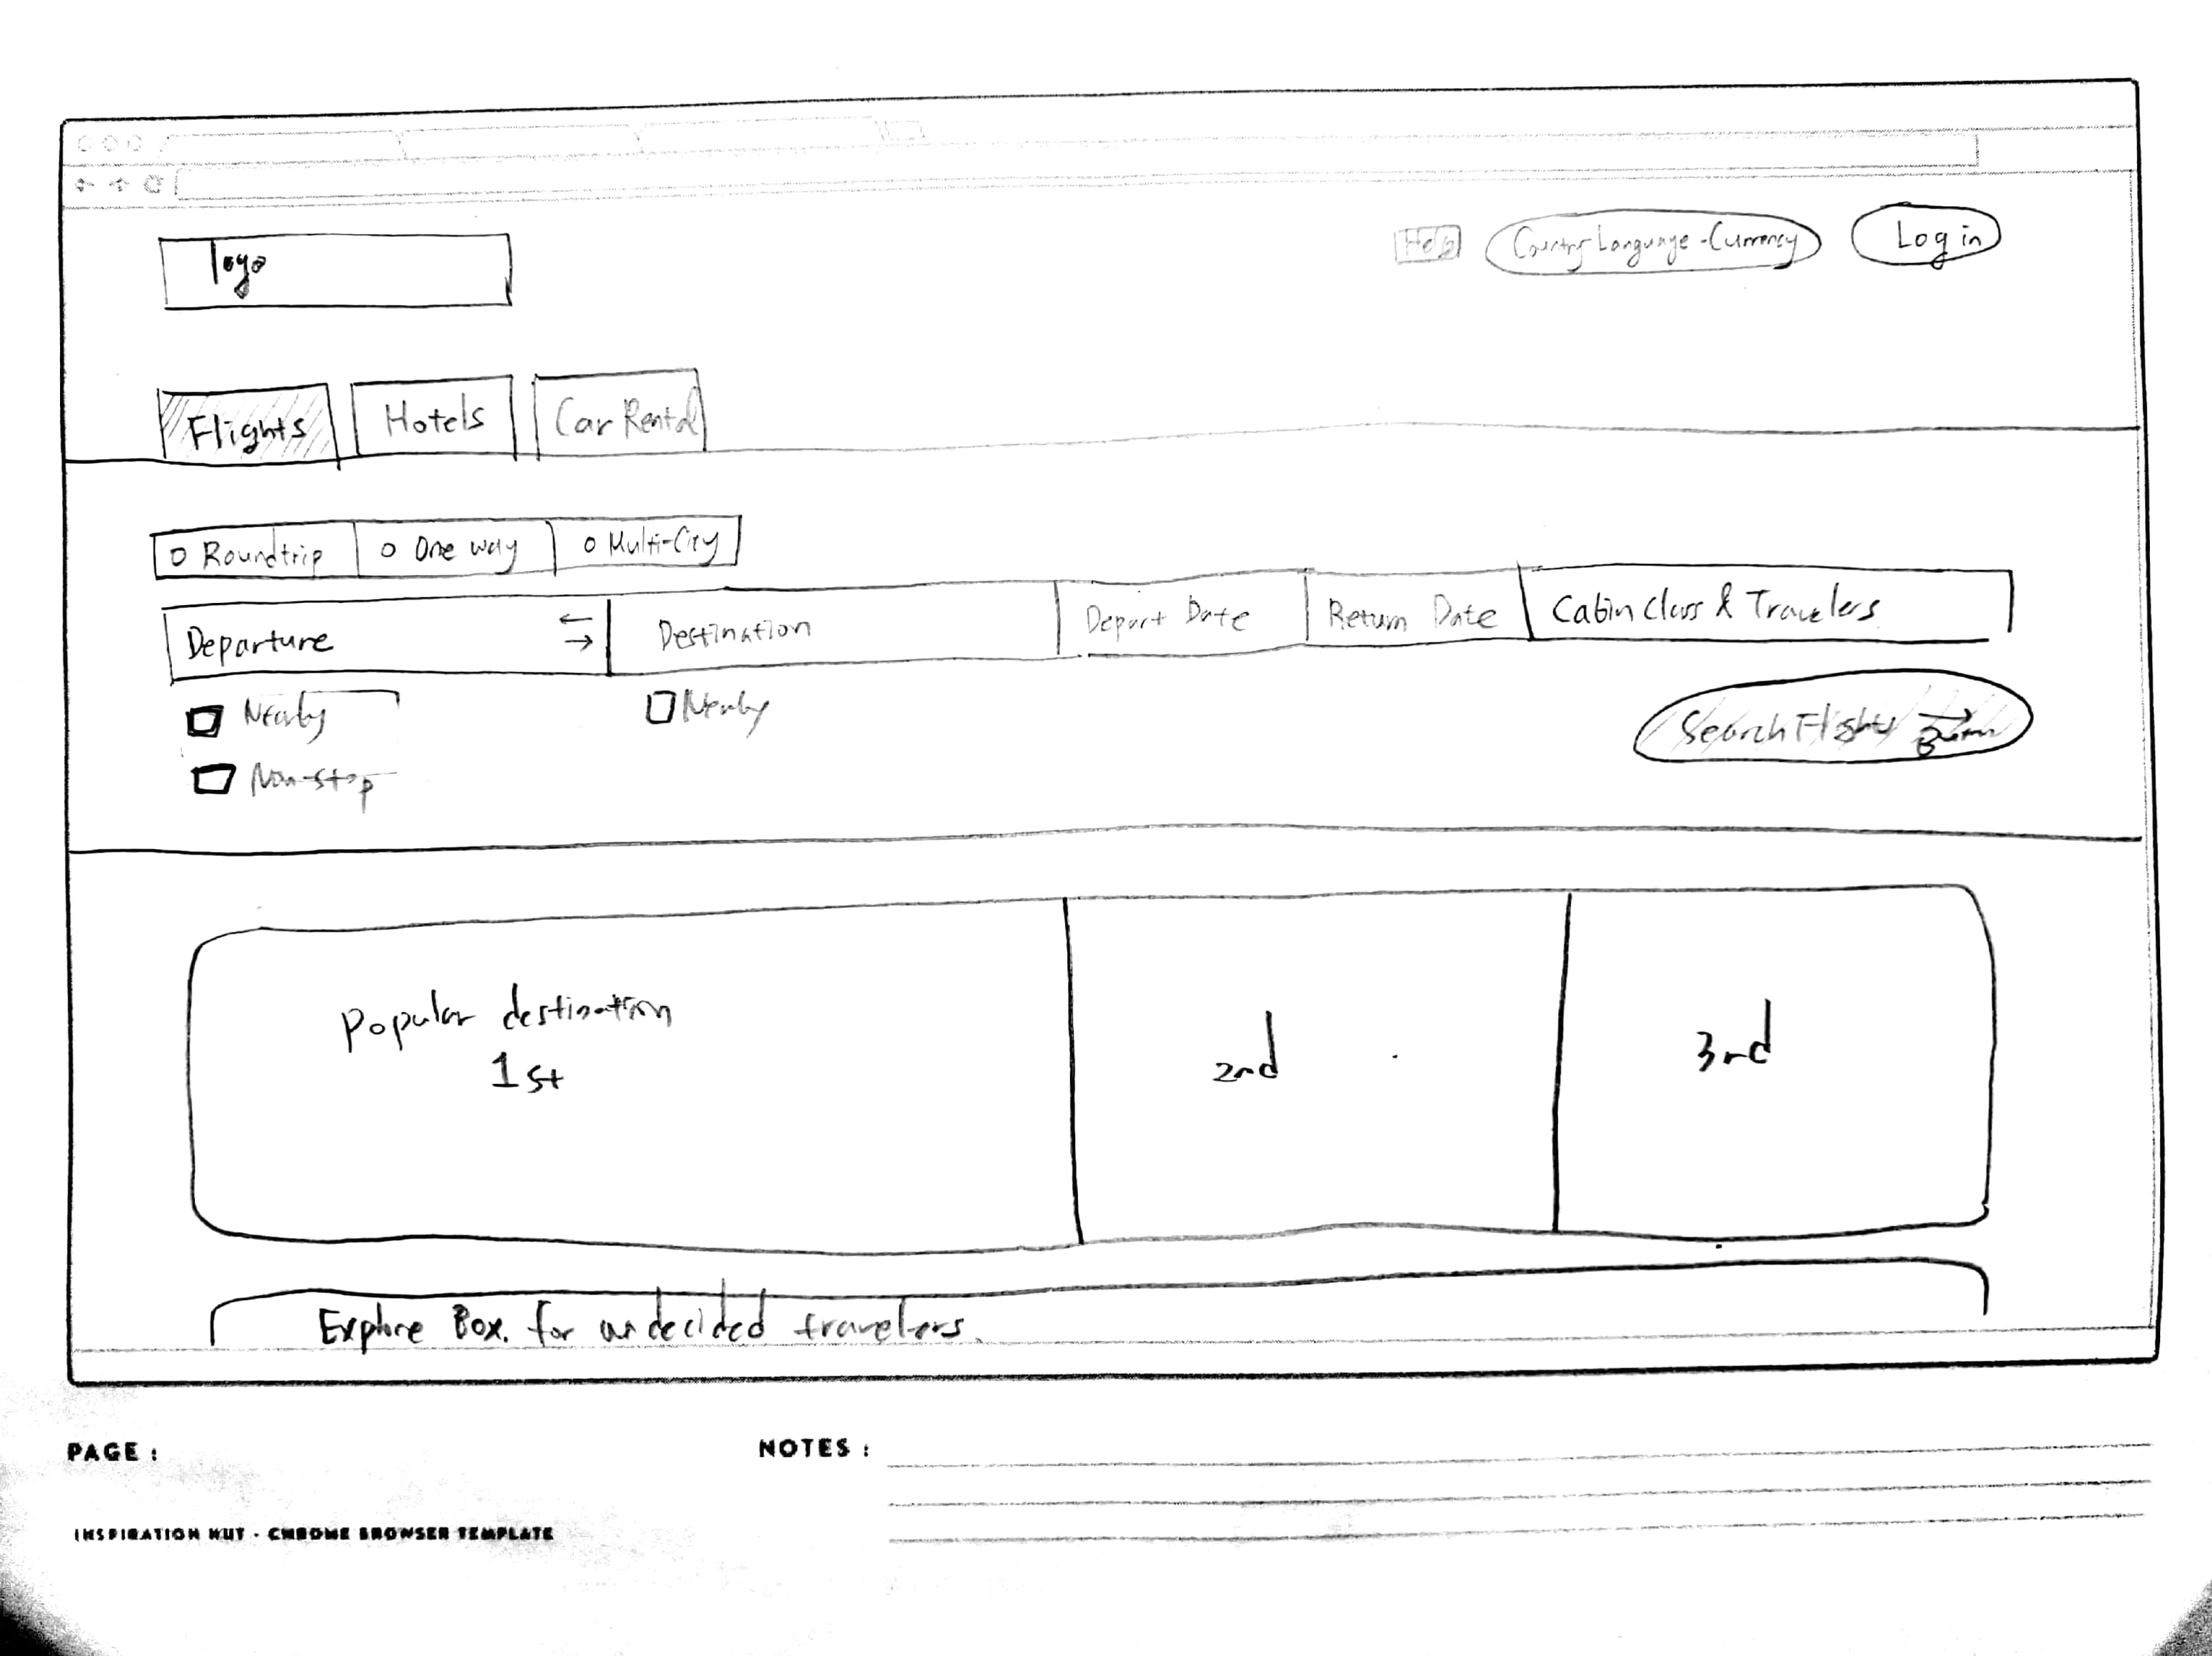 logo
Help
Country-Language-Currency
Log in
Flights
Hotels
Car Rental
Roundtrip
One way
Multi-City
Departure
Destination
Depart Date
Return Date
Cabin Class & Travelers
Nearby
Nearby
Search Flights
Non-stop
Popular destination
1st
2nd
3rd
Explore Box. for undecided travelers.
PAGE :
NOTES :
INSPIRATION HUT - CHROME BROWSER TEMPLATE